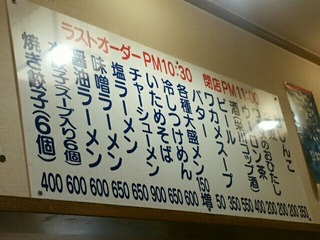 ラストオーダーPM10:30 閉店PM11:00
おひたし
ビール
ワカメスープ
バター
各種大盛メン
冷しつけめん
いためそば
チャーシューメン
塩ラーメン
味噌ラーメン
醤油ラーメン
水餃子スープ入り(6個)
焼き餃子(6個)
400 600 600 650 650 900 650 600 150増 50 350 550 400 200 200 200 350